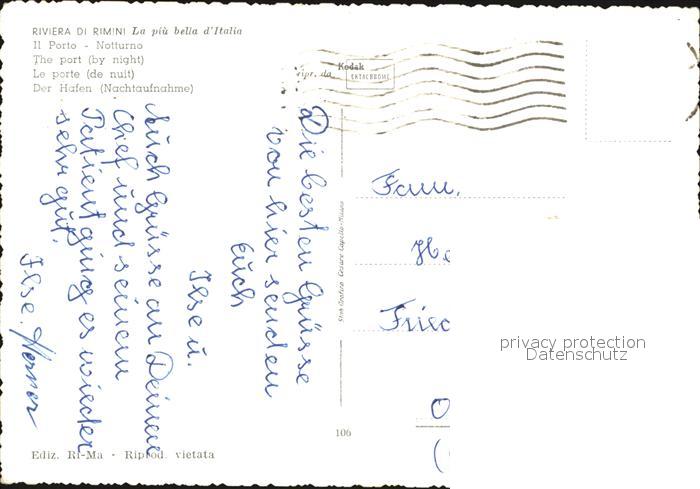 RIVIERA DI RIMINI La più bella d'Italia
Il Porto - Notturno
The port (by night)
Le porte (de nuit)
Der Hafen (Nachtaufnahme)
ripr. da
Kodak
EKTACHROME
Die besten Grüsse
von hier senden
Euch
Ilse u.
Auch Grüsse an Deinen
Chef und seinem
Patient ging es wieder
sehr gut.
Ilse. Werner
Fam.
He
Fried
O
(
Cesare Capello-Milano
privacy protection
Datenschutz
106
Ediz. RI-Ma - Riprod. vietata